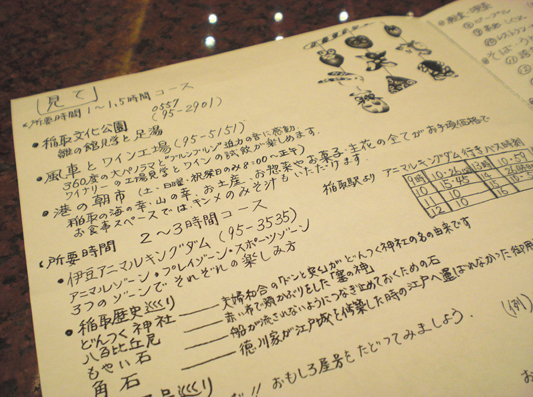 [見て]
所要時間 1〜1,5時間 コース
0557
・稲取文化公園 (95-2901)
雛の館見学と足湯
・風車とワイン工場 (95-5151)
360度の大パノラマと"ブルンブルン"迫力の音に感動
ワイナリーの工場見学とワインの試飲が楽しめます。
・港の朝市 (土・日曜・祝祭日のみ 8:00〜正午)
稲取の海の幸・山の幸、お土産、お惣菜やお菓子、生花の全てがお手頃価格で
お食事スペースでは、キンメのみそ汁もいただけます
所要時間 2〜3時間コース
稲取駅より アニマルキングダム行きバス時刻
9時 10・26
10 15 45
11 15
12 10
10・59
・伊豆アニマルキングダム (95-3535)
アニマルゾーン・プレイゾーン・スポーツゾーン
3つのゾーンでそれぞれの楽しみ方
・稲取歴史巡り
どんつく神社 ── 夫婦和合のドンと突けばがどんつく神社の名の由来です
八百比丘尼 ── 赤い布で頬かぶりをした「塞の神」
もやい石 ── 船が流されないようにつなぎ止めておくための石
角石 ── 徳川家が江戸城を修築した時の江戸へ運ばれなかった御用
巡り
!! おもしろ屋号をたどってみましょう。
(例)